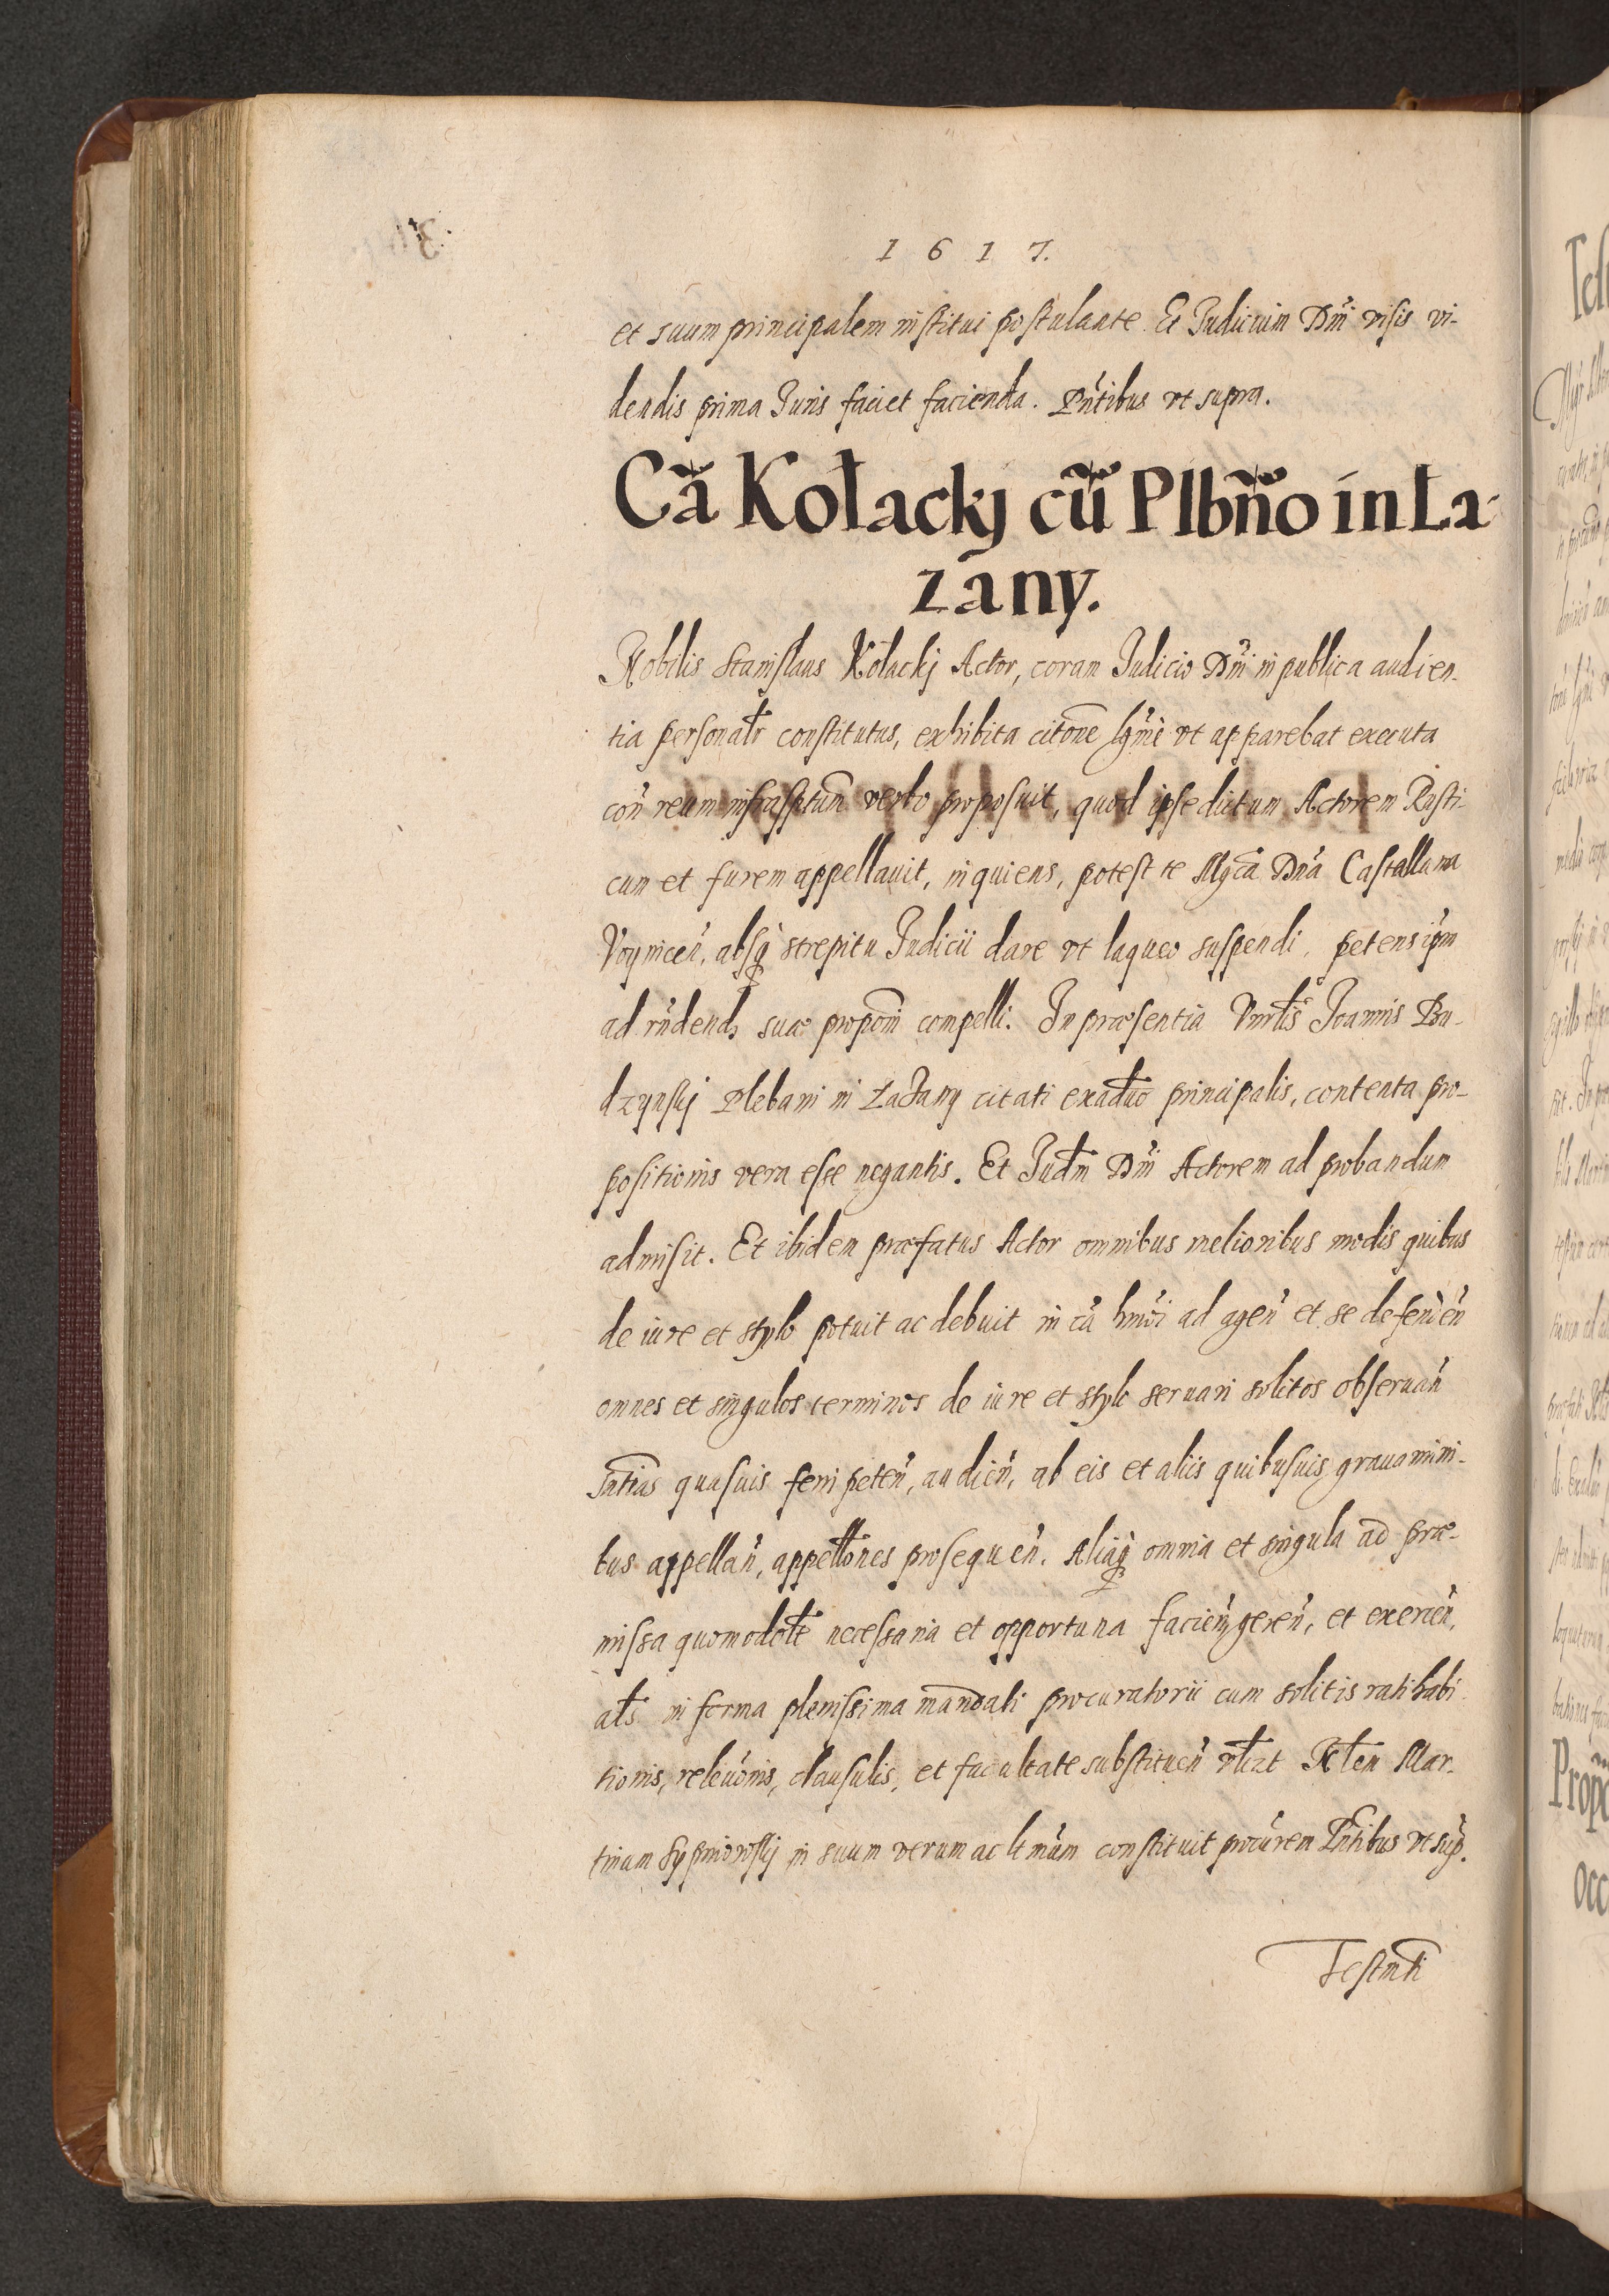 1 6 1 7.
et suum principalem institui postulante. Et Iudicium Dni visis vi-
dendis prima Iuris faciet facienda. Pñtibus vt supra.
Cã Kołackj cũ Plbño in Ła-
zany.
Nobilis Stanislaus Kołackj Actor, coram Iudicio Dni in publica audien-
tia personałr constitutus, exhibita citõne lgmè vt apparebat executa
coñ reum infrascriptum verbo proposuit, quod ipse dictum Actorem Rusti-
cum et furem appellauit, inquiens, potest te Mgca Dna Castellana
Voynicen, absq strepitu Iudicii dare vt laqueo suspendi, petens ipm
ad rñdend, suæ propoñi compelli. In præsentia Vnrłis Ioannis Bu-
dzynskj Plebani in Łazany citati ex aduo principalis, contenta pro-
positionis vera esse negantis. Et Iudm Dni Actorem ad probandum
admisit. Et ibidem præfatus Actor omnibus melioribus modis quibus
de iure et stylo potuit ac debuit in cã hmoi ad ageñ et se defendeñ
omnes et singulos terminos de iure et stylo seruari solitos obseruañ
sntias quasuis ferri peteñ, audieñ, ab eis et aliis quibusuis grauamini-
bus appellañ, appełłones prosequeñ. Aliaq omnia et singula ad præ-
missa quomodołt necessaria et opportuna facieñ, gereñ, et exerceñ,
ałs in forma plenissima mandati procuratorii cum solitis ratihabi-
tionis, releuonis, clausulis, et facultate substitueñ vłizt Mar-
tinum in suum verum ac ltmum constituit procurem Pñtibus vt sup.
Testmti